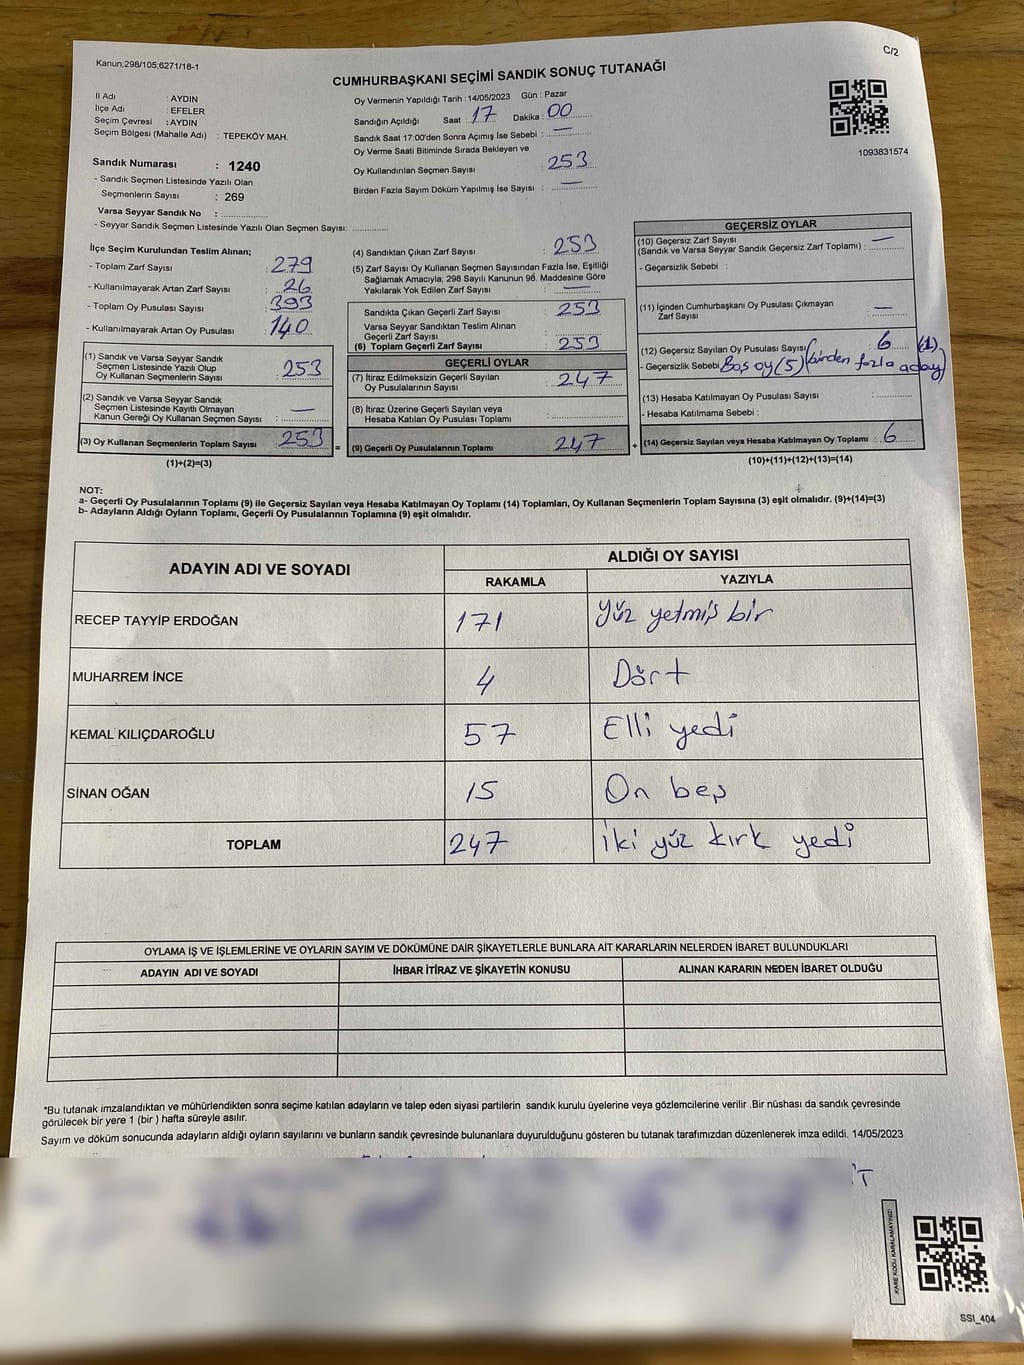 Kanun;298/105,6271/18-1
C/2
CUMHURBAŞKANI SEÇİMİ SANDIK SONUÇ TUTANAĞI
İl Adı : AYDIN
İlçe Adı : EFELER
Seçim Çevresi : AYDIN
Seçim Bölgesi (Mahalle Adı) : TEPEKÖY MAH.
Sandık Numarası : 1240
- Sandık Seçmen Listesinde Yazılı Olan
Seçmenlerin Sayısı : 269
Varsa Seyyar Sandık No :
- Seyyar Sandık Seçmen Listesinde Yazılı Olan Seçmen Sayısı:
Oy Vermenin Yapıldığı Tarih :14/05/2023 Gün : Pazar
Sandığın Açıldığı Saat : 17 Dakika : 00
Sandık Saat 17:00'den Sonra Açımış İse Sebebi : —
Oy Verme Saati Bitiminde Sırada Bekleyen ve
Oy Kullandırılan Seçmen Sayısı : 253
Birden Fazla Sayım Döküm Yapılmış İse Sayısı : —
1093831574
İlçe Seçim Kurulundan Teslim Alınan;
- Toplam Zarf Sayısı : 279
- Kullanılmayarak Artan Zarf Sayısı : 26
- Toplam Oy Pusulası Sayısı : 393
- Kullanılmayarak Artan Oy Pusulası : 140
(1) Sandık ve Varsa Seyyar Sandık
Seçmen Listesinde Yazılı Olup
Oy Kullanan Seçmenlerin Sayısı : 253
(2) Sandık ve Varsa Seyyar Sandık
Seçmen Listesinde Kayıtlı Olmayan
Kanun Gereği Oy Kullanan Seçmen Sayısı : —
(3) Oy Kullanan Seçmenlerin Toplam Sayısı : 253 =
(1)+(2)=(3)
(4) Sandıktan Çıkan Zarf Sayısı : 253
(5) Zarf Sayısı Oy Kullanan Seçmen Sayısından Fazla İse, Eşitliği
Sağlamak Amacıyla; 298 Sayılı Kanunun 98. Maddesine Göre
Yakılarak Yok Edilen Zarf Sayısı : —
Sandıkta Çıkan Geçerli Zarf Sayısı : 253
Varsa Seyyar Sandıktan Teslim Alınan
Geçerli Zarf Sayısı :
(6) Toplam Geçerli Zarf Sayısı : 253
GEÇERLİ OYLAR
(7) İtiraz Edilmeksizin Geçerli Sayılan
Oy Pusulalarının Sayısı : 247
(8) İtiraz Üzerine Geçerli Sayılan veya
Hesaba Katılan Oy Pusulası Toplamı :
(9) Geçerli Oy Pusulalarının Toplamı : 247 +
GEÇERSİZ OYLAR
(10) Geçersiz Zarf Sayısı —
(Sandık ve Varsa Seyyar Sandık Geçersiz Zarf Toplamı) :
- Geçersizlik Sebebi :
(11) İçinden Cumhurbaşkanı Oy Pusulası Çıkmayan
Zarf Sayısı : —
(12) Geçersiz Sayılan Oy Pusulası Sayısı : 6 (1)
- Geçersizlik Sebebi : Boş oy (5) (birden fazla aday)
(13) Hesaba Katılmayan Oy Pusulası Sayısı :
- Hesaba Katılmama Sebebi :
(14) Geçersiz Sayılan veya Hesaba Katılmayan Oy Toplamı : 6
(10)+(11)+(12)+(13)=(14)
NOT:
a- Geçerli Oy Pusulalarının Toplamı (9) ile Geçersiz Sayılan veya Hesaba Katılmayan Oy Toplamı (14) Toplamları, Oy Kullanan Seçmenlerin Toplam Sayısına (3) eşit olmalıdır. (9)+(14)=(3)
b- Adayların Aldığı Oyların Toplamı, Geçerli Oy Pusulalarının Toplamına (9) eşit olmalıdır.
ADAYIN ADI VE SOYADI
ALDIĞI OY SAYISI
RAKAMLA YAZIYLA
RECEP TAYYİP ERDOĞAN 171 Yüz yetmiş bir
MUHARREM İNCE 4 Dört
KEMAL KILIÇDAROĞLU 57 Elli yedi
SİNAN OĞAN 15 On beş
TOPLAM 247 İki yüz kırk yedi
OYLAMA İŞ VE İŞLEMLERİNE VE OYLARIN SAYIM VE DÖKÜMÜNE DAİR ŞİKAYETLERLE BUNLARA AİT KARARLARIN NELERDEN İBARET BULUNDUKLARI
ADAYIN ADI VE SOYADI İHBAR İTİRAZ VE ŞİKAYETİN KONUSU ALINAN KARARIN NEDEN İBARET OLDUĞU
*Bu tutanak imzalandıktan ve mühürlendikten sonra seçime katılan adayların ve talep eden siyasi partilerin sandık kurulu üyelerine veya gözlemcilerine verilir .Bir nüshası da sandık çevresinde
görülecek bir yere 1 (bir ) hafta süreyle asılır.
Sayım ve döküm sonucunda adayların aldığı oyların sayılarını ve bunların sandık çevresinde bulunanlara duyurulduğunu gösteren bu tutanak tarafımızdan düzenlenerek imza edildi. 14/05/2023
KARE KODU KARALAMAYINIZ!
SSI_404